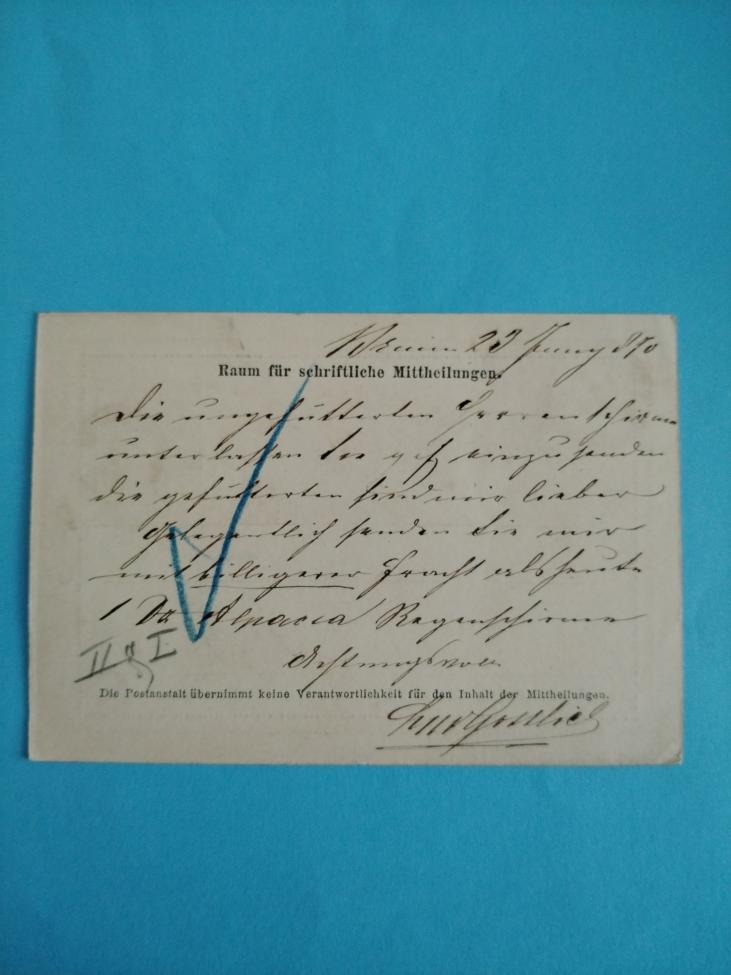 23 Juny 870
Raum für schriftliche Mittheilungen.
Die ungefütterten Herrenschirme
unterlassen Sie gefl einzusenden
die gefütterten sind mir lieber
Gelegentlich senden Sie mir
mit billigerer Fracht als heute
1 Dz Alpacca Regenschirme
Achtungsvoll
II & I
Die Postanstalt übernimmt keine Verantwortlichkeit für den Inhalt der Mittheilungen.